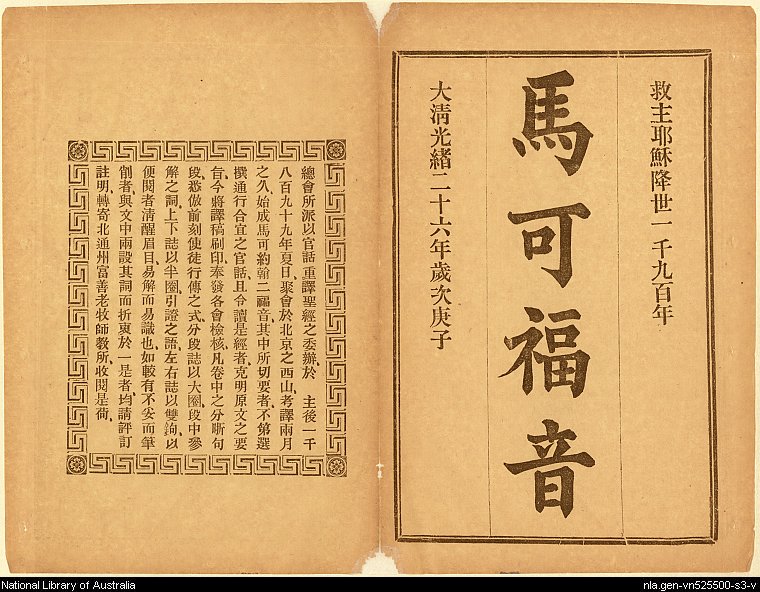 救主耶穌降世一千九百年
馬可福音
大清光緒二十六年歲次庚子
總會所派以官話重譯聖經之委辦於 主後一千
八百九十九年夏日、聚會於北京之西山、考譯兩月
之久、始成馬可約翰二福音、其中所切要者、不第選
撰通行合宜之官話、且令讀是經者、克明原文之要
旨、今將譯稿刷印、奉發各會檢核、凡卷中之分晰句
段、悉倣前刻使徒行傳之式、分段誌以大圈、段中參
解之詞、上下誌以半圈、引證之語、左右誌以雙鉤、以
便閱者清醒眉目、易解而易識也、如較有不妥而筆
削者、與文中兩設其詞、而折衷於一是者、均請評訂
註明、轉寄北通州富善老牧師敎所收閱是荷、
National Library of Australia
nla.gen-vn525500-s3-v